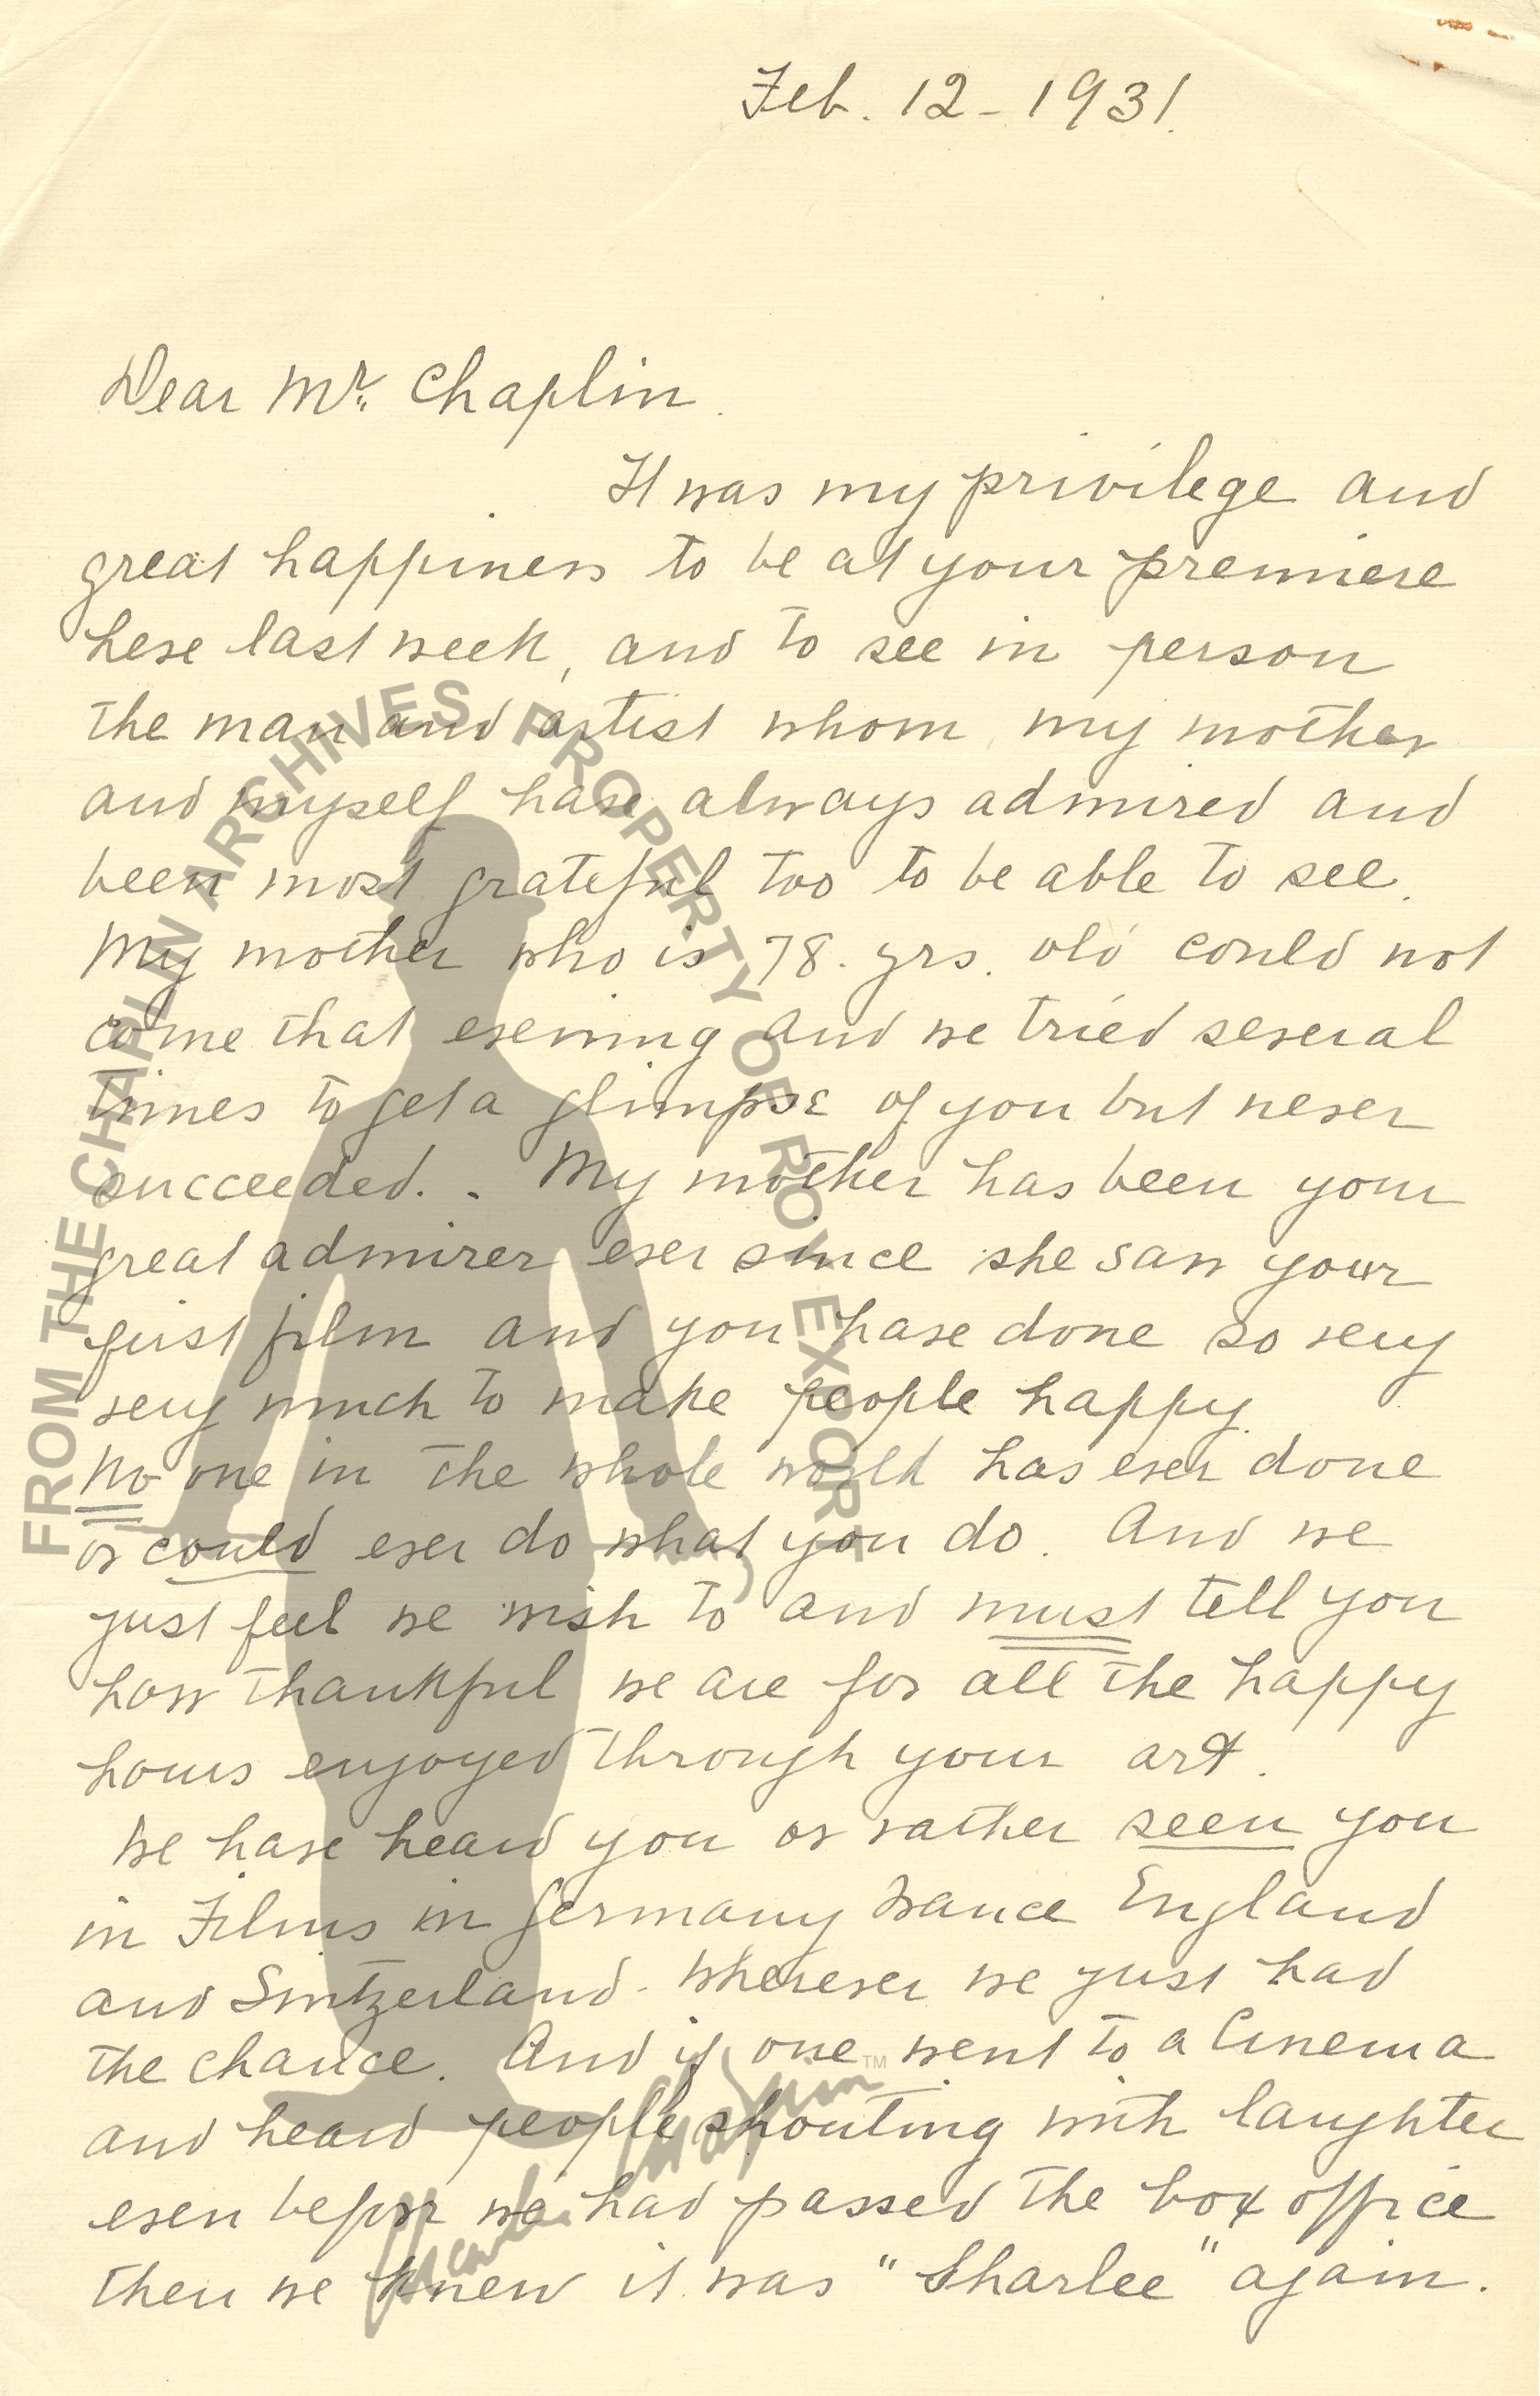 Feb. 12 - 1931.
Dear Mr. Chaplin.
It was my privilege and
great happiness to be at your premiere
here last week, and to see in person
the man and artist whom my mother
and myself have always admired and
been most grateful too to be able to see.
My mother who is 78. yrs. old could not
come that evening and we tried several
times to get a glimpse of you but never
succeeded. . My mother has been your
great admirer ever since she saw your
first film and you have done so very
very much to make people happy.
No one in the whole world has ever done
or could ever do what you do. And we
just feel we wish to and must tell you
how thankful we are for all the happy
hours enjoyed through your art.
We have heard you or rather seen you
in Films in Germany France England
and Switzerland. Wherever we just had
the chance. And if one went to a Cinema
and heard people shouting with laughter
even before we had passed the box office
then we knew it was "Sharlee" again.
FROM THE CHAPLIN ARCHIVES PROPERTY OF ROY EXPORT
Charlie Chaplin TM